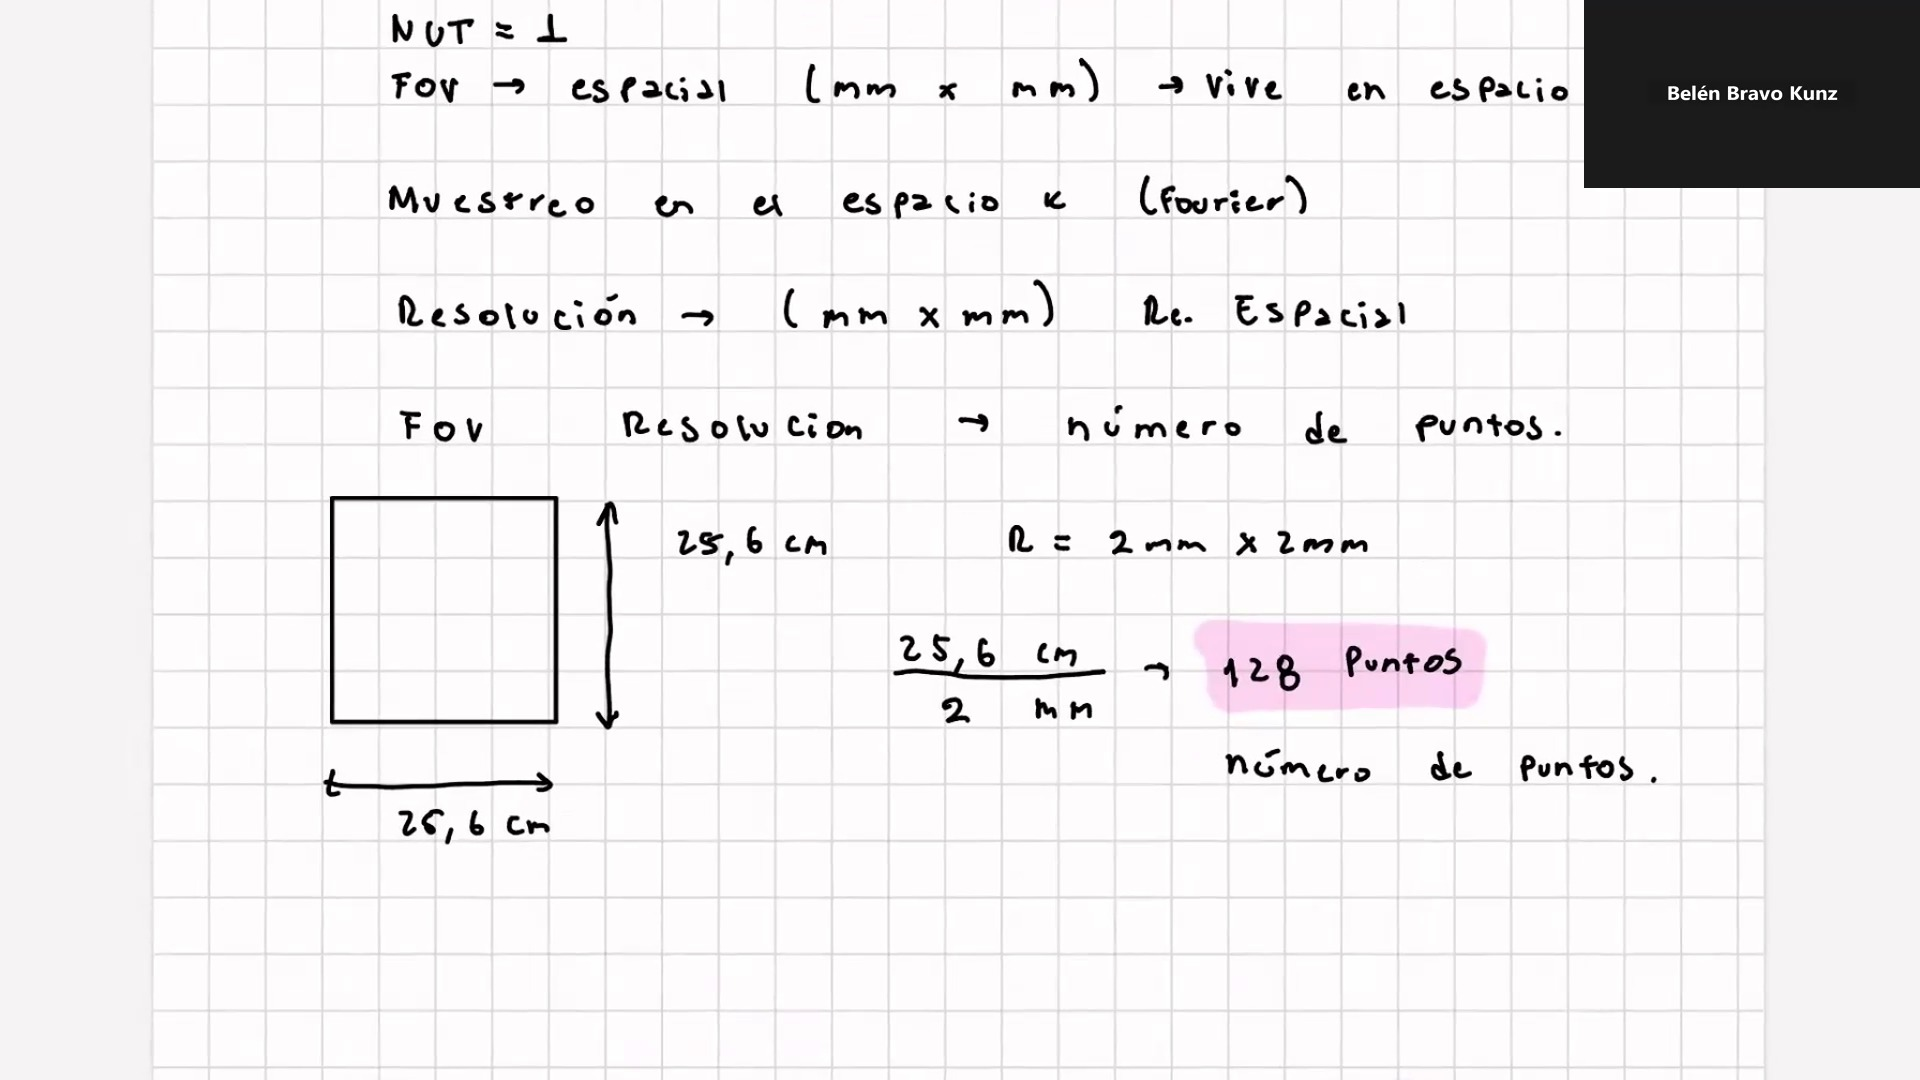 NUT = 1
FOV → espacial (mm x mm) → Vive en espacio
Belén Bravo Kunz
Muestreo en el espacio K (Fourier)
Resolución → (mm x mm) Re. Espacial
FOV Resolucion → número de puntos.
25,6 cm R = 2mm x 2mm
25,6 cm → 128 Puntos
2 mm
número de puntos.
25,6 cm